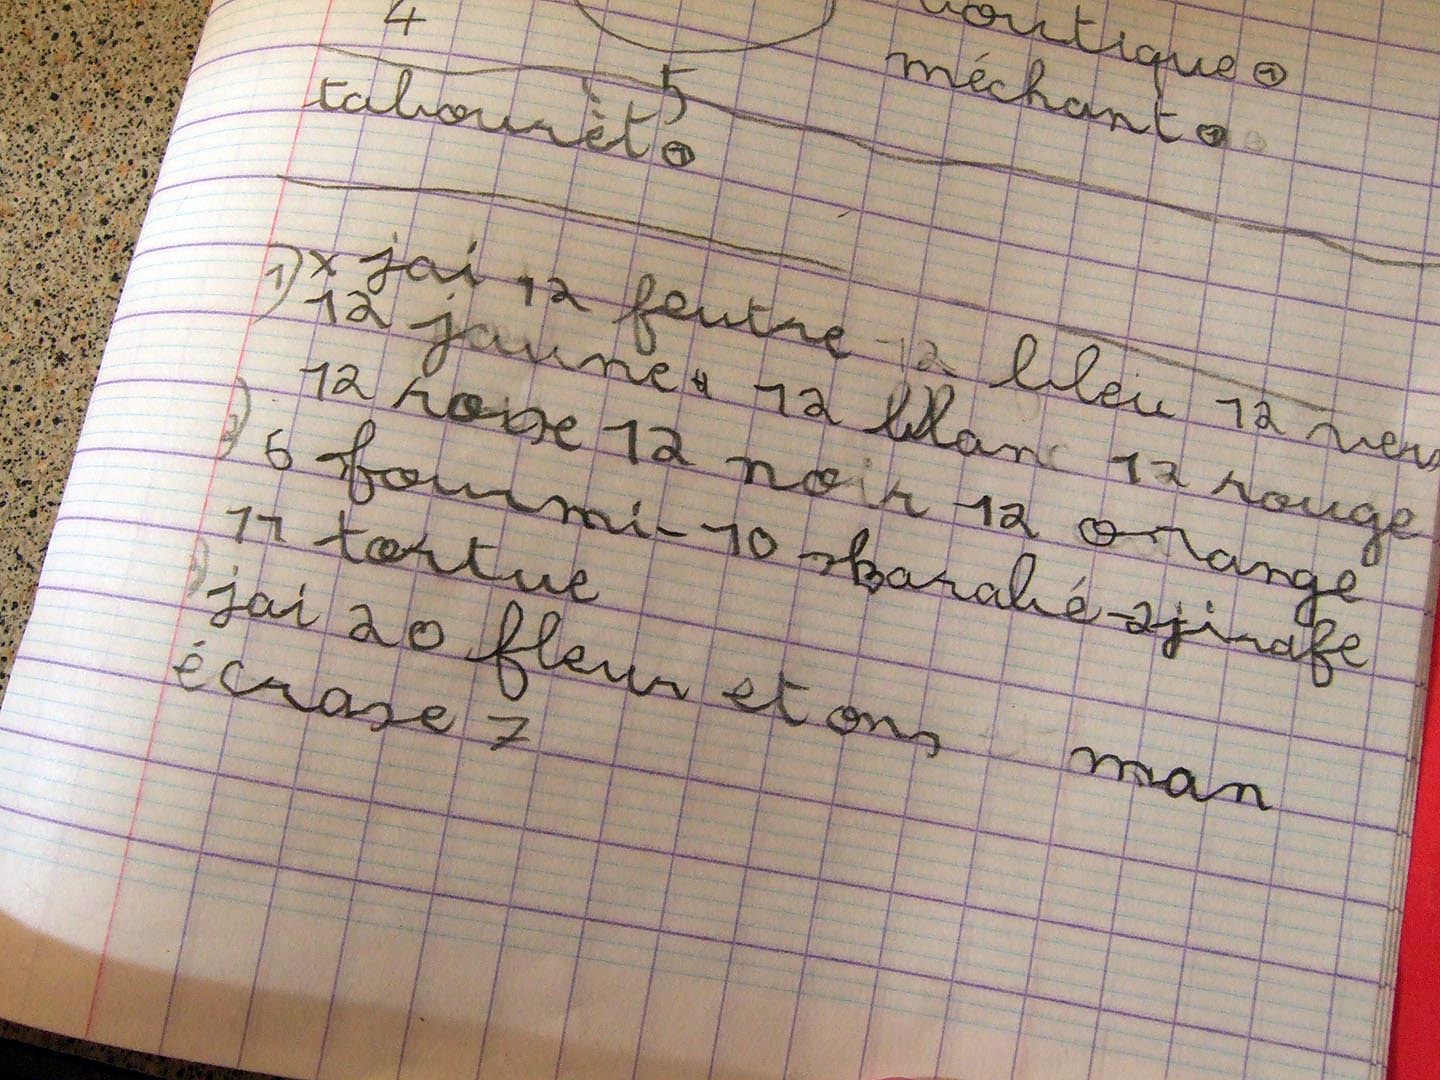 4 5 boutique
méchant
tabourèt
1) x jai 12 feutre 12 bleu 12 vers
12 jaune 12 blanc 12 rouge
12 rose 12 noir 12 orange
2) 6 fourmi - 10 skarabé - 2 jirafe
11 tortue
3) jai 20 fleur et on man
écrase 7